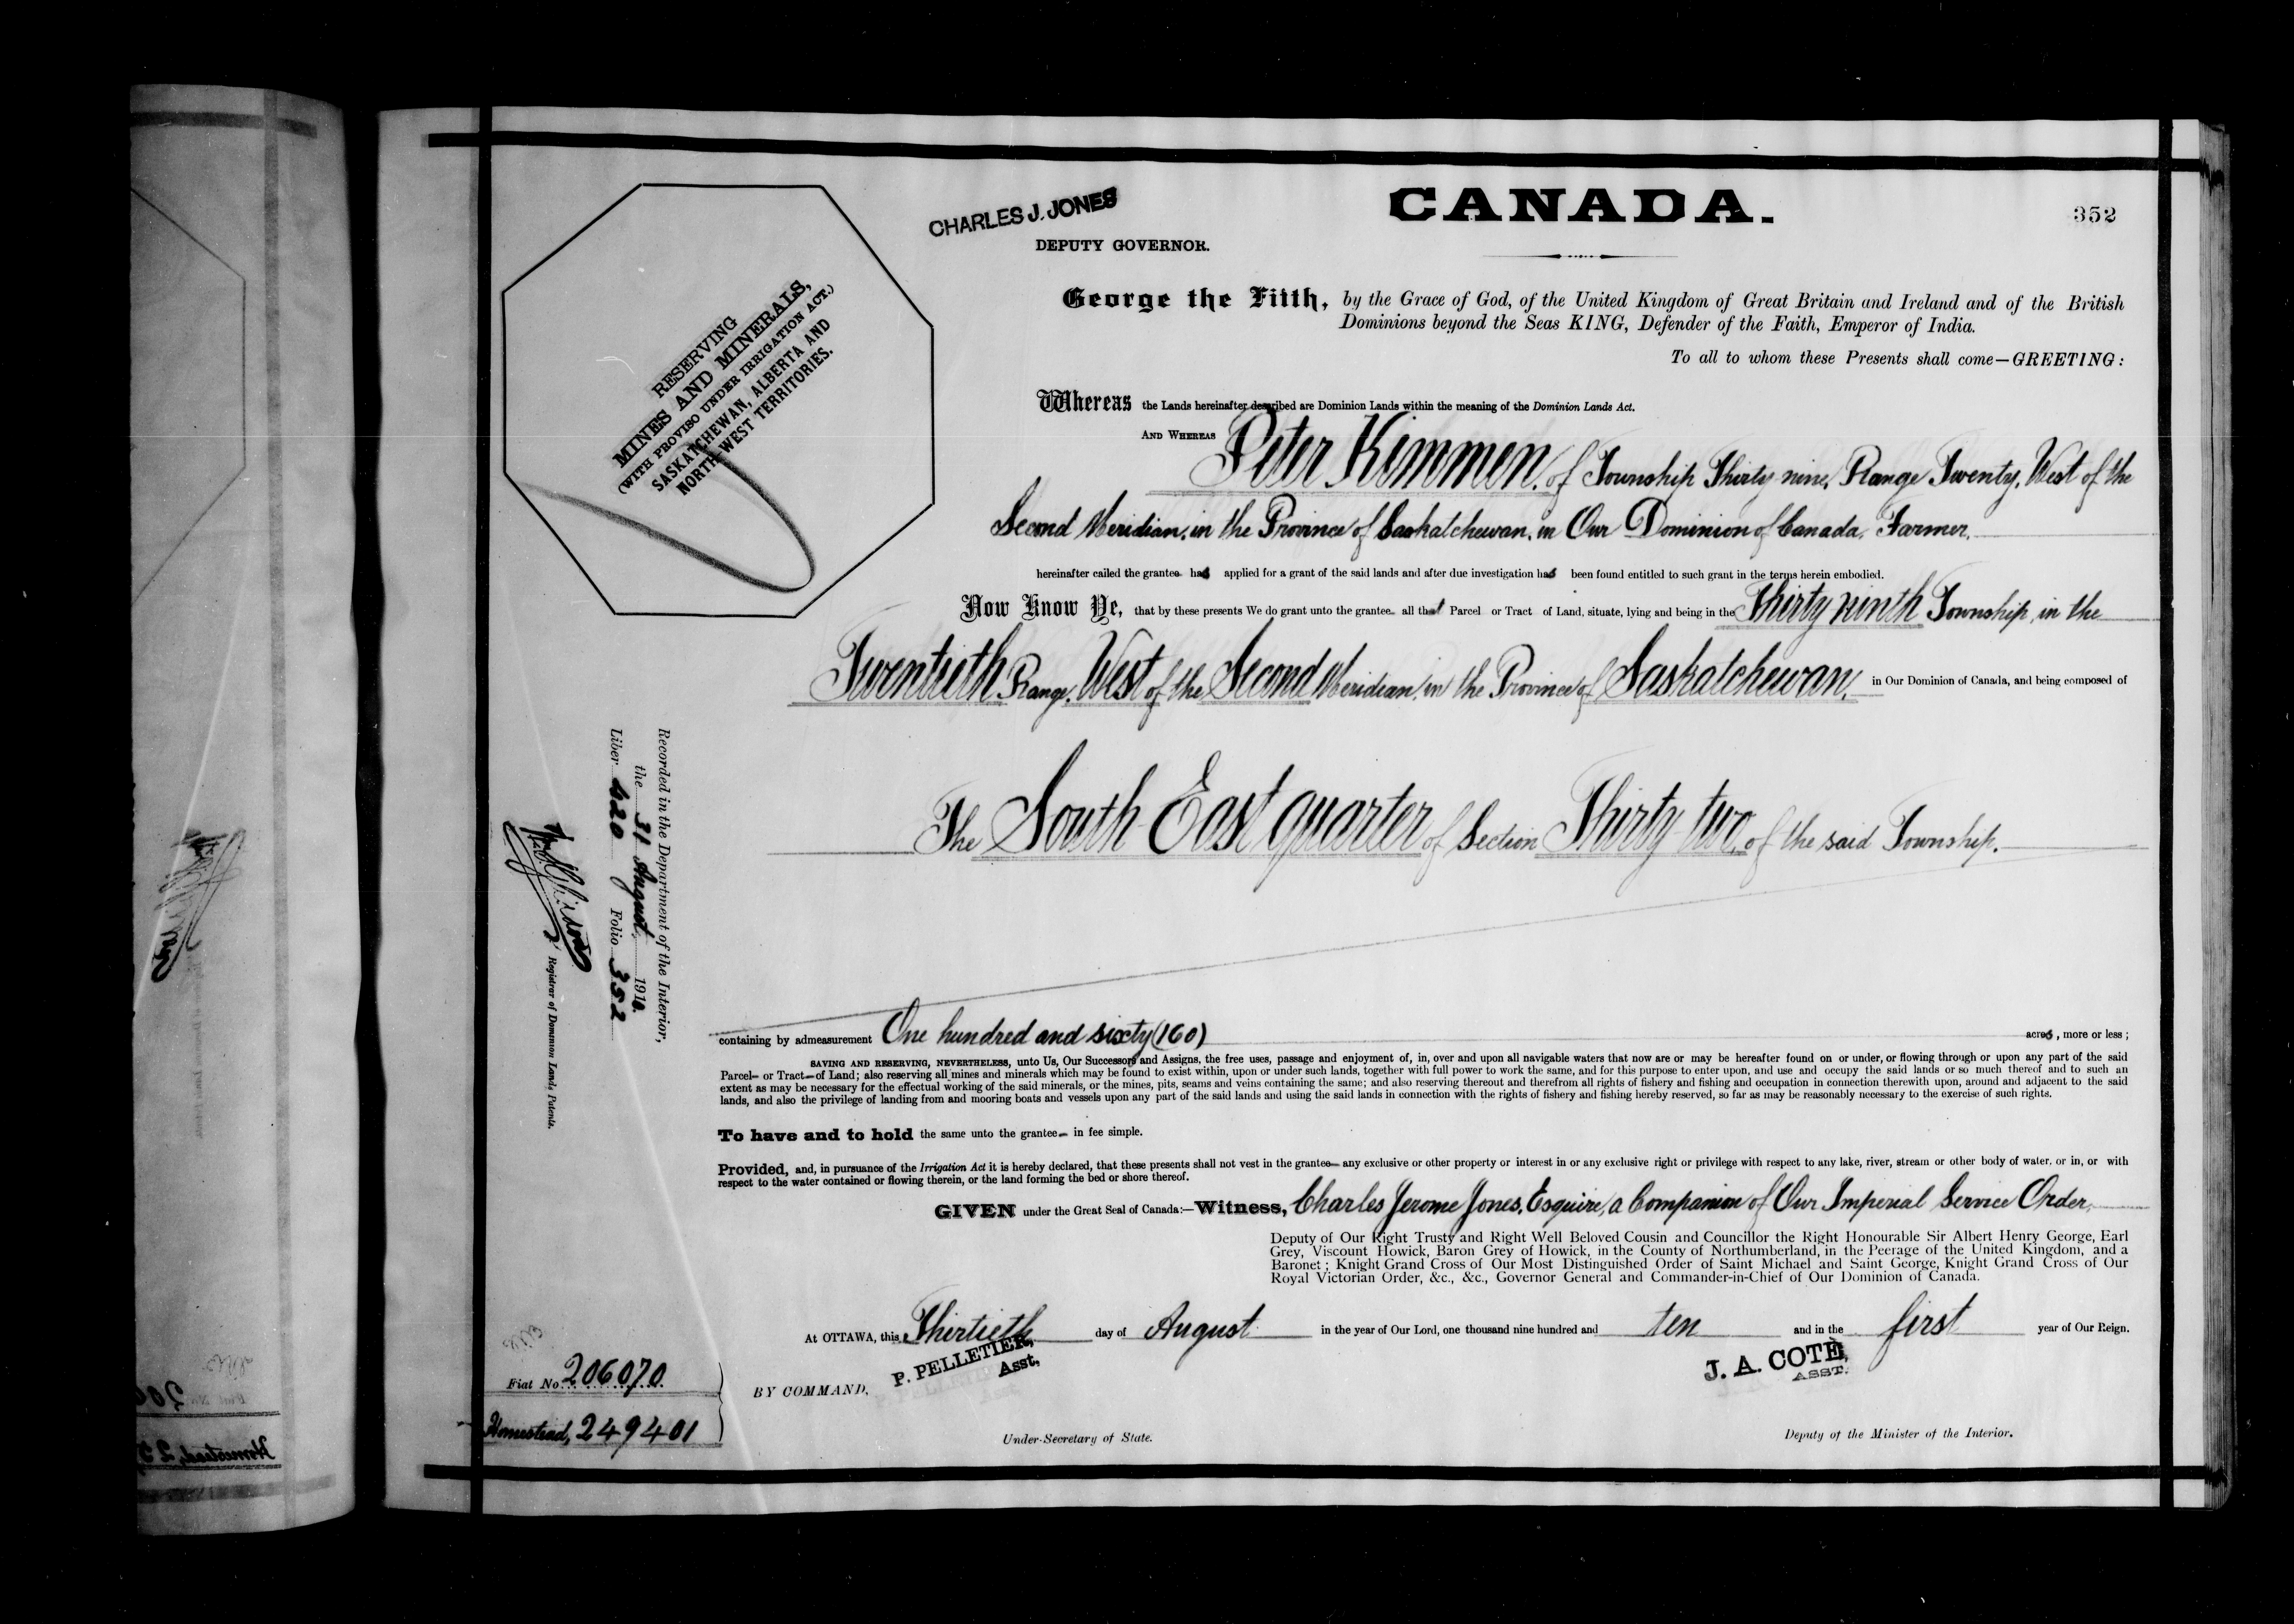 CHARLES J. JONES
DEPUTY GOVERNOR.
CANADA.
352
RESERVING
MINES AND MINERALS,
(WITH PROVISO UNDER IRRIGATION ACT.)
SASKATCHEWAN, ALBERTA AND
NORTH-WEST TERRITORIES.
George the Fifth, by the Grace of God, of the United Kingdom of Great Britain and Ireland and of the British
Dominions beyond the Seas KING, Defender of the Faith, Emperor of India.
To all to whom these Presents shall come—GREETING:
Whereas the Lands hereinafter described are Dominion Lands within the meaning of the Dominion Lands Act.
AND WHEREAS Peter Kimmen, of Township Thirty nine, Range Twenty, West of the
Second Meridian, in the Province of Saskatchewan, in Our Dominion of Canada, Farmer,
hereinafter called the grantee has applied for a grant of the said lands and after due investigation has been found entitled to such grant in the terms herein embodied.
Now Know Ye, that by these presents We do grant unto the grantee all that Parcel or Tract of Land, situate, lying and being in the Thirty ninth Township, in the
Twentieth Range, West of the Second Meridian, in the Province of Saskatchewan, in Our Dominion of Canada, and being composed of
The South East quarter of Section Thirty two, of the said Township.
Recorded in the Department of the Interior,
the 31 August 1910.
Liber 420 Folio 352
Registrar of Dominion Lands Patents.
containing by admeasurement One hundred and sixty (160) acres, more or less;
SAVING AND RESERVING, NEVERTHELESS, unto Us, Our Successors and Assigns, the free uses, passage and enjoyment of, in, over and upon all navigable waters that now are or may be hereafter found on or under, or flowing through or upon any part of the said
Parcel or Tract of Land; also reserving all mines and minerals which may be found to exist within, upon or under such lands, together with full power to work the same, and for this purpose to enter upon, and use and occupy the said lands or so much thereof and to such an
extent as may be necessary for the effectual working of the said minerals, or the mines, pits, seams and veins containing the same; and also reserving thereout and therefrom all rights of fishery and fishing and occupation in connection therewith upon, around and adjacent to the said
lands, and also the privilege of landing from and mooring boats and vessels upon any part of the said lands and using the said lands in connection with the rights of fishery and fishing hereby reserved, so far as may be reasonably necessary to the exercise of such rights.
To have and to hold the same unto the grantee in fee simple.
Provided, and, in pursuance of the Irrigation Act it is hereby declared, that these presents shall not vest in the grantee any exclusive or other property or interest in or any exclusive right or privilege with respect to any lake, river, stream or other body of water, or in, or with
respect to the water contained or flowing therein, or the land forming the bed or shore thereof.
GIVEN under the Great Seal of Canada:—Witness, Charles Jerome Jones, Esquire, a Companion of Our Imperial Service Order,
Deputy of Our Right Trusty and Right Well Beloved Cousin and Councillor the Right Honourable Sir Albert Henry George, Earl
Grey, Viscount Howick, Baron Grey of Howick, in the County of Northumberland, in the Peerage of the United Kingdom, and a
Baronet; Knight Grand Cross of Our Most Distinguished Order of Saint Michael and Saint George, Knight Grand Cross of Our
Royal Victorian Order, &c., &c., Governor General and Commander-in-Chief of Our Dominion of Canada.
At OTTAWA, this Thirtieth day of August in the year of Our Lord, one thousand nine hundred and ten and in the first year of Our Reign.
P. PELLETIER,
Asst,
J. A. COTE,
ASST.
Fiat No. 206070
Homestead, 249401
BY COMMAND,
Under-Secretary of State.
Deputy of the Minister of the Interior.